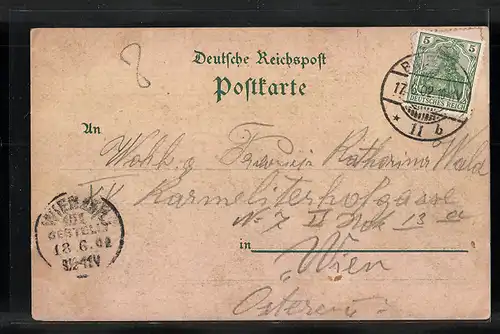 8
Deutsche Reichspost
Postkarte
5 5
DEUTSCHES REICH
17.6.02
* 11 b
An
Wohlg Katharina Wald
XV Karmeliterhofgasse
No 7 II
WIEN
BESTELLT
18.6.02
in Wien